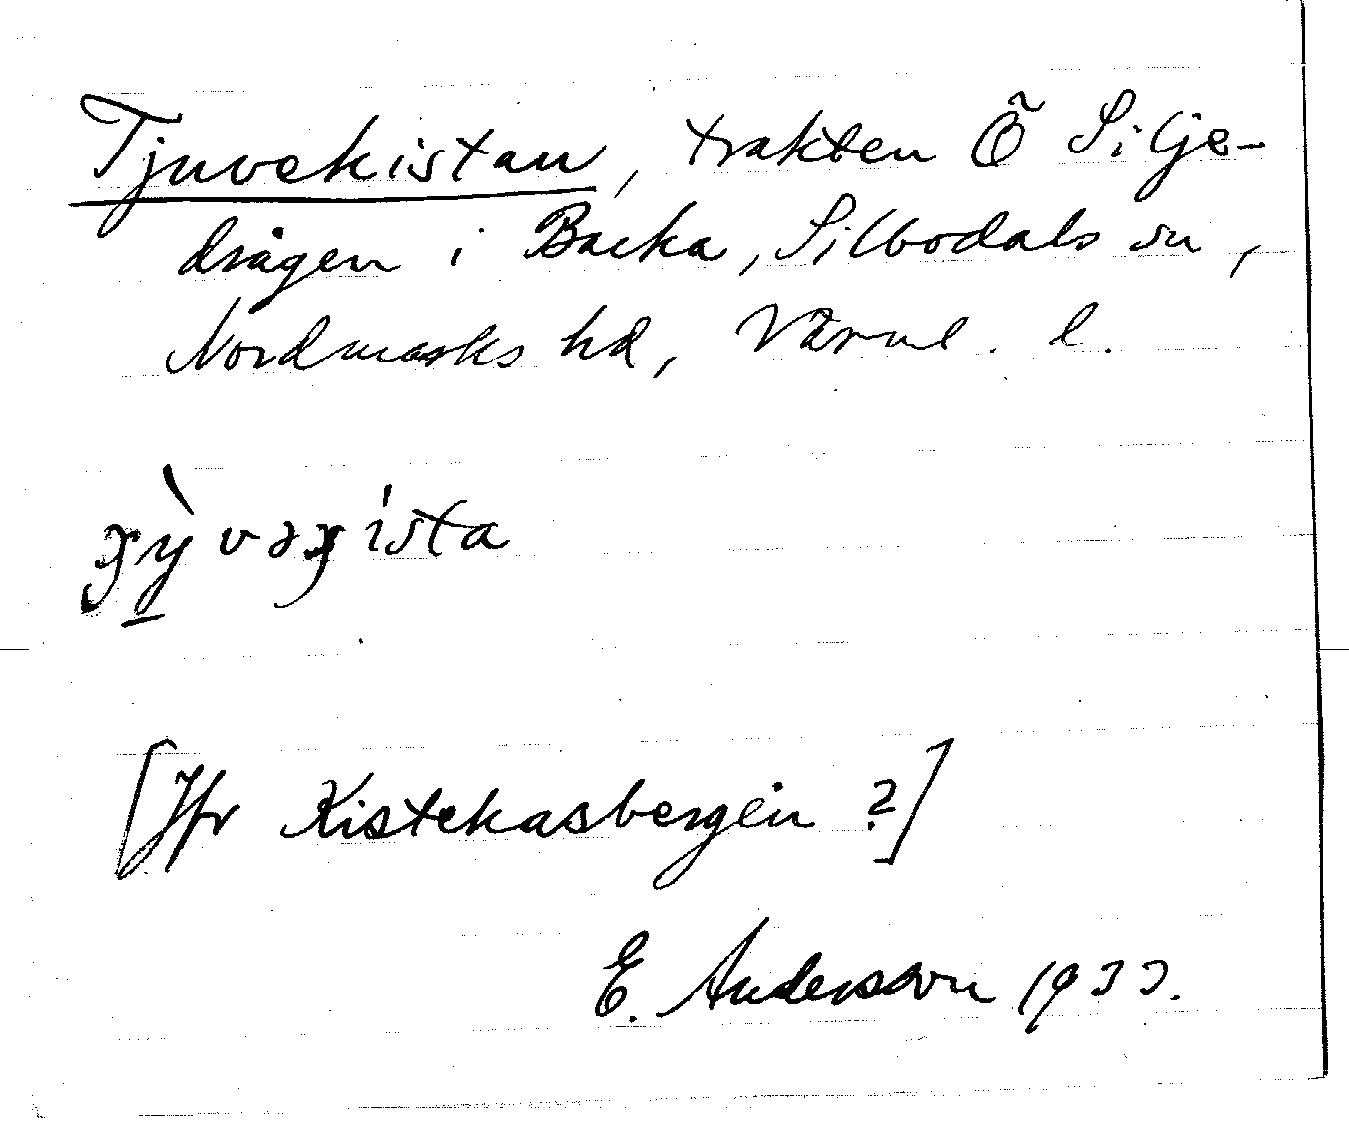 Tjuvekistan, trakten Ö Silje-
drågen i Backa, Silbodals sn,
Nordmarks hd, Värml. l.
[Jfr Kistekasbergen ?]
E. Andersson 1933.